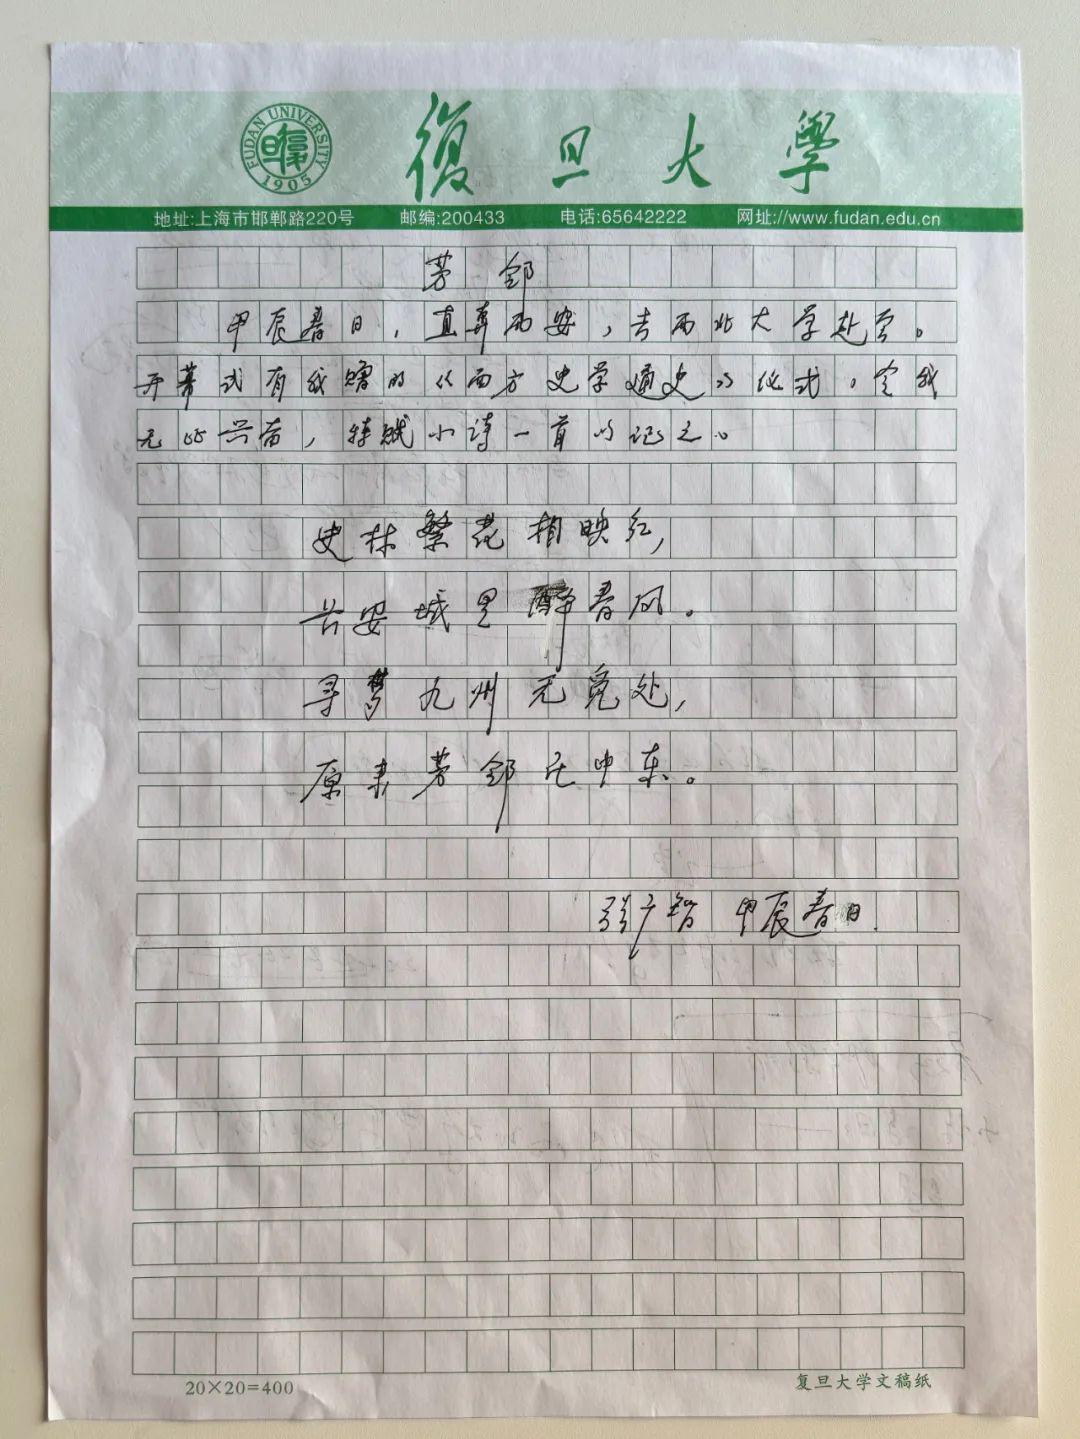 FUDAN UNIVERSITY 1905
復旦大學
地址:上海市邯郸路220号 邮编:200433 电话:65642222 网址://www.fudan.edu.cn
芳邻
甲辰春日，直奔西安，去西北大学赴会。
开幕式有我赠的《西方史学通史》仪式，令我
无比兴奋，特赋小诗一首以记之。
史林繁花相映红，
长安城里醉春风。
寻梦九州无觅处，
原来芳邻在申东。
张广智 甲辰春日.
20×20=400
复旦大学文稿纸